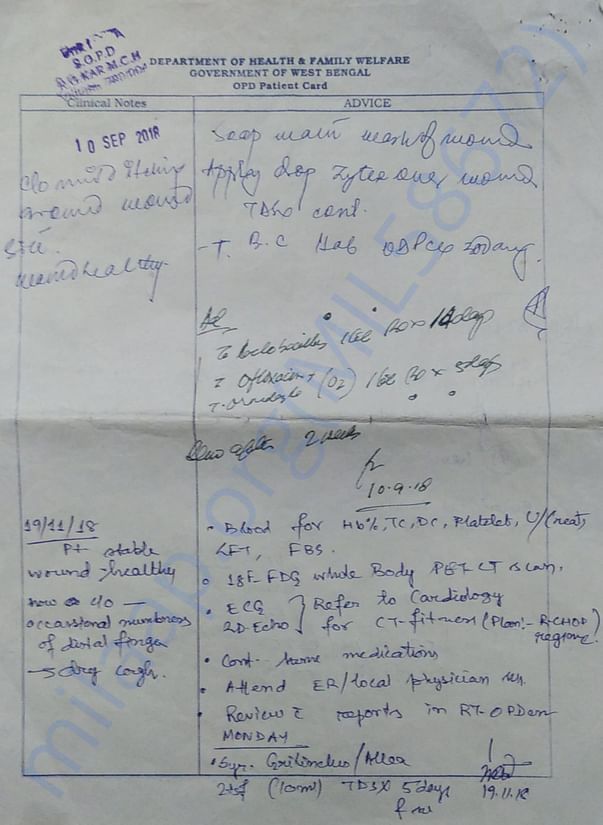 S.O.P.D
R.G.KAR M.C.H
DEPARTMENT OF HEALTH & FAMILY WELFARE
GOVERNMENT OF WEST BENGAL
OPD Patient Card
Clinical Notes
ADVICE
10 SEP 2018
c/o mild itching
around wound
site.
wound healthy.
Soap water wash of wound
Apply wound
TDS cont.
- T. B.C OD
Ad
T. 1 tab BD x 14 days
T. Ofloxacin + (OZ) 1 tab BD x 5 days
T. Ornidazole
after 2 weeks
10.9.18
19/11/18
Pt stable
wound → healthy
now c/o —
occassional numbness
of distal finger
→ dry cough.
• Blood for Hb%, TC, DC, Platelet, U/Creat,
LFT, FBS.
• 18F FDG whole Body PET CT scan.
• ECG } Refer to Cardiology
2D-Echo for CT-fitness (Plan:- R-CHOP
regime.
• Cont. same medications
• Attend ER/local physician
• Review c̄ reports in RT-OPD on
MONDAY
• Syr. Grilinctus/Alex
2 tsf (10ml) TDS x 5 days
19.11.18
milaap.org(MIL58672)